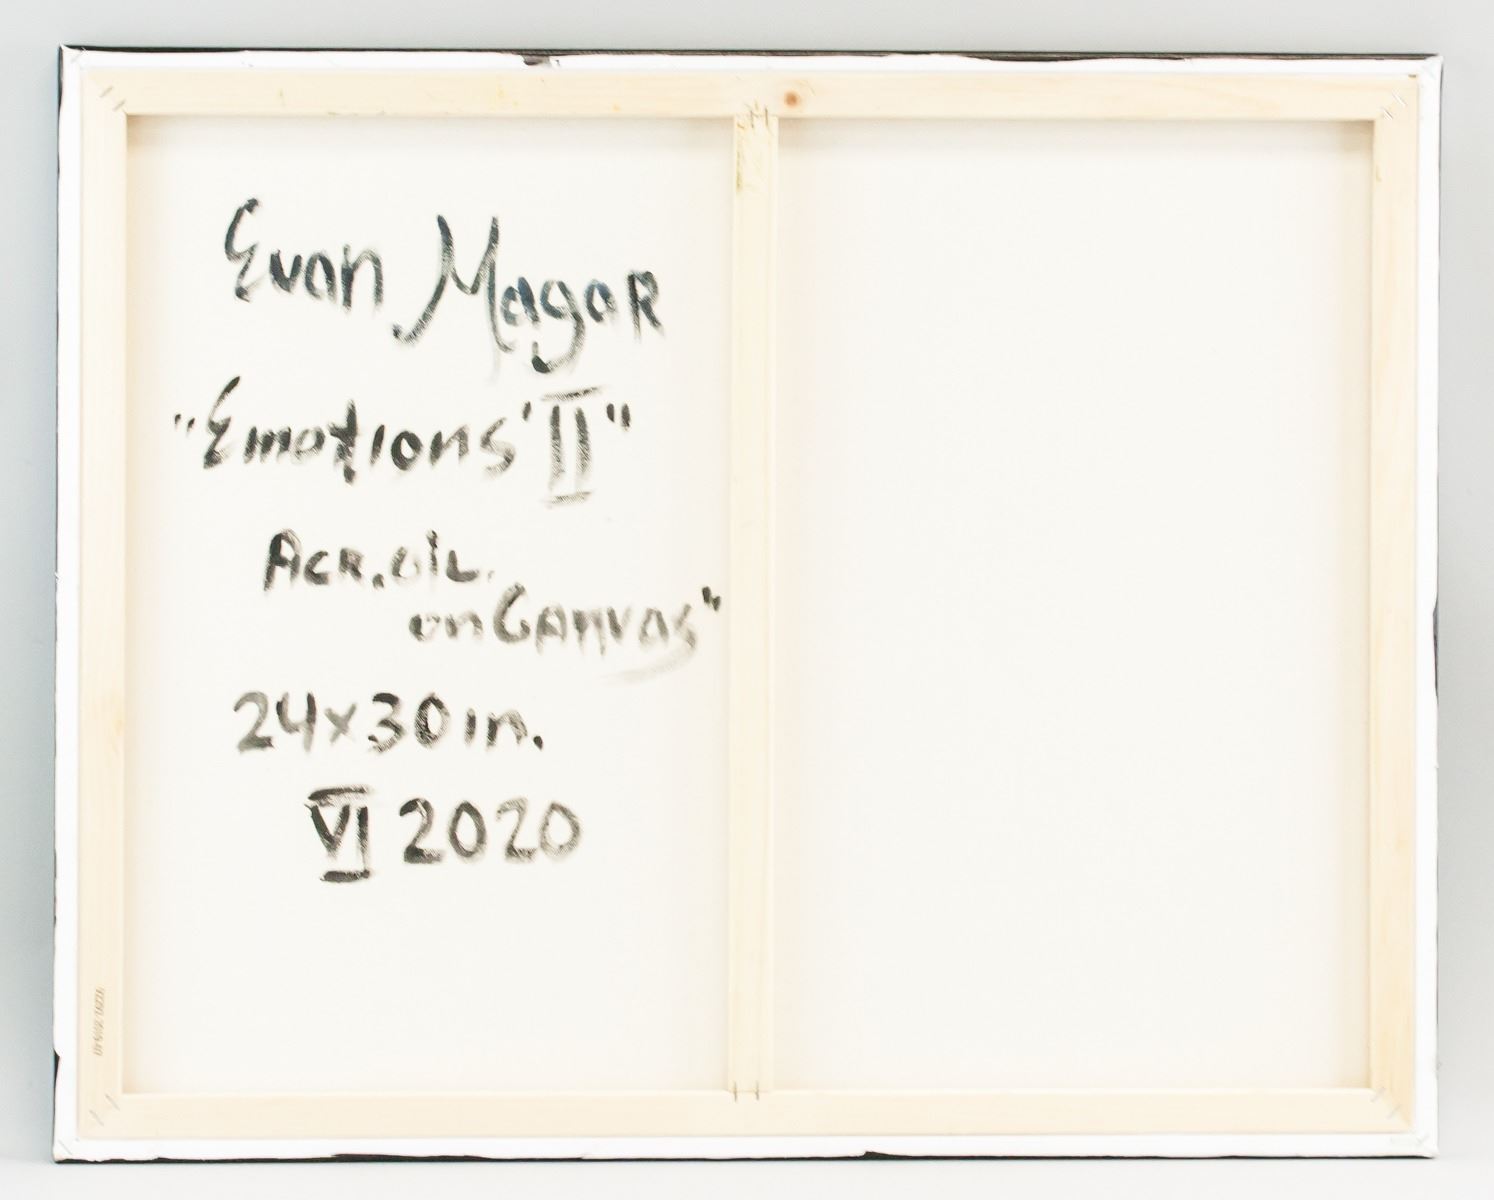 Evan MagaR
"Emotions' II"
Acr. oil.
on Canvas"
24x30 in.
VI 2020